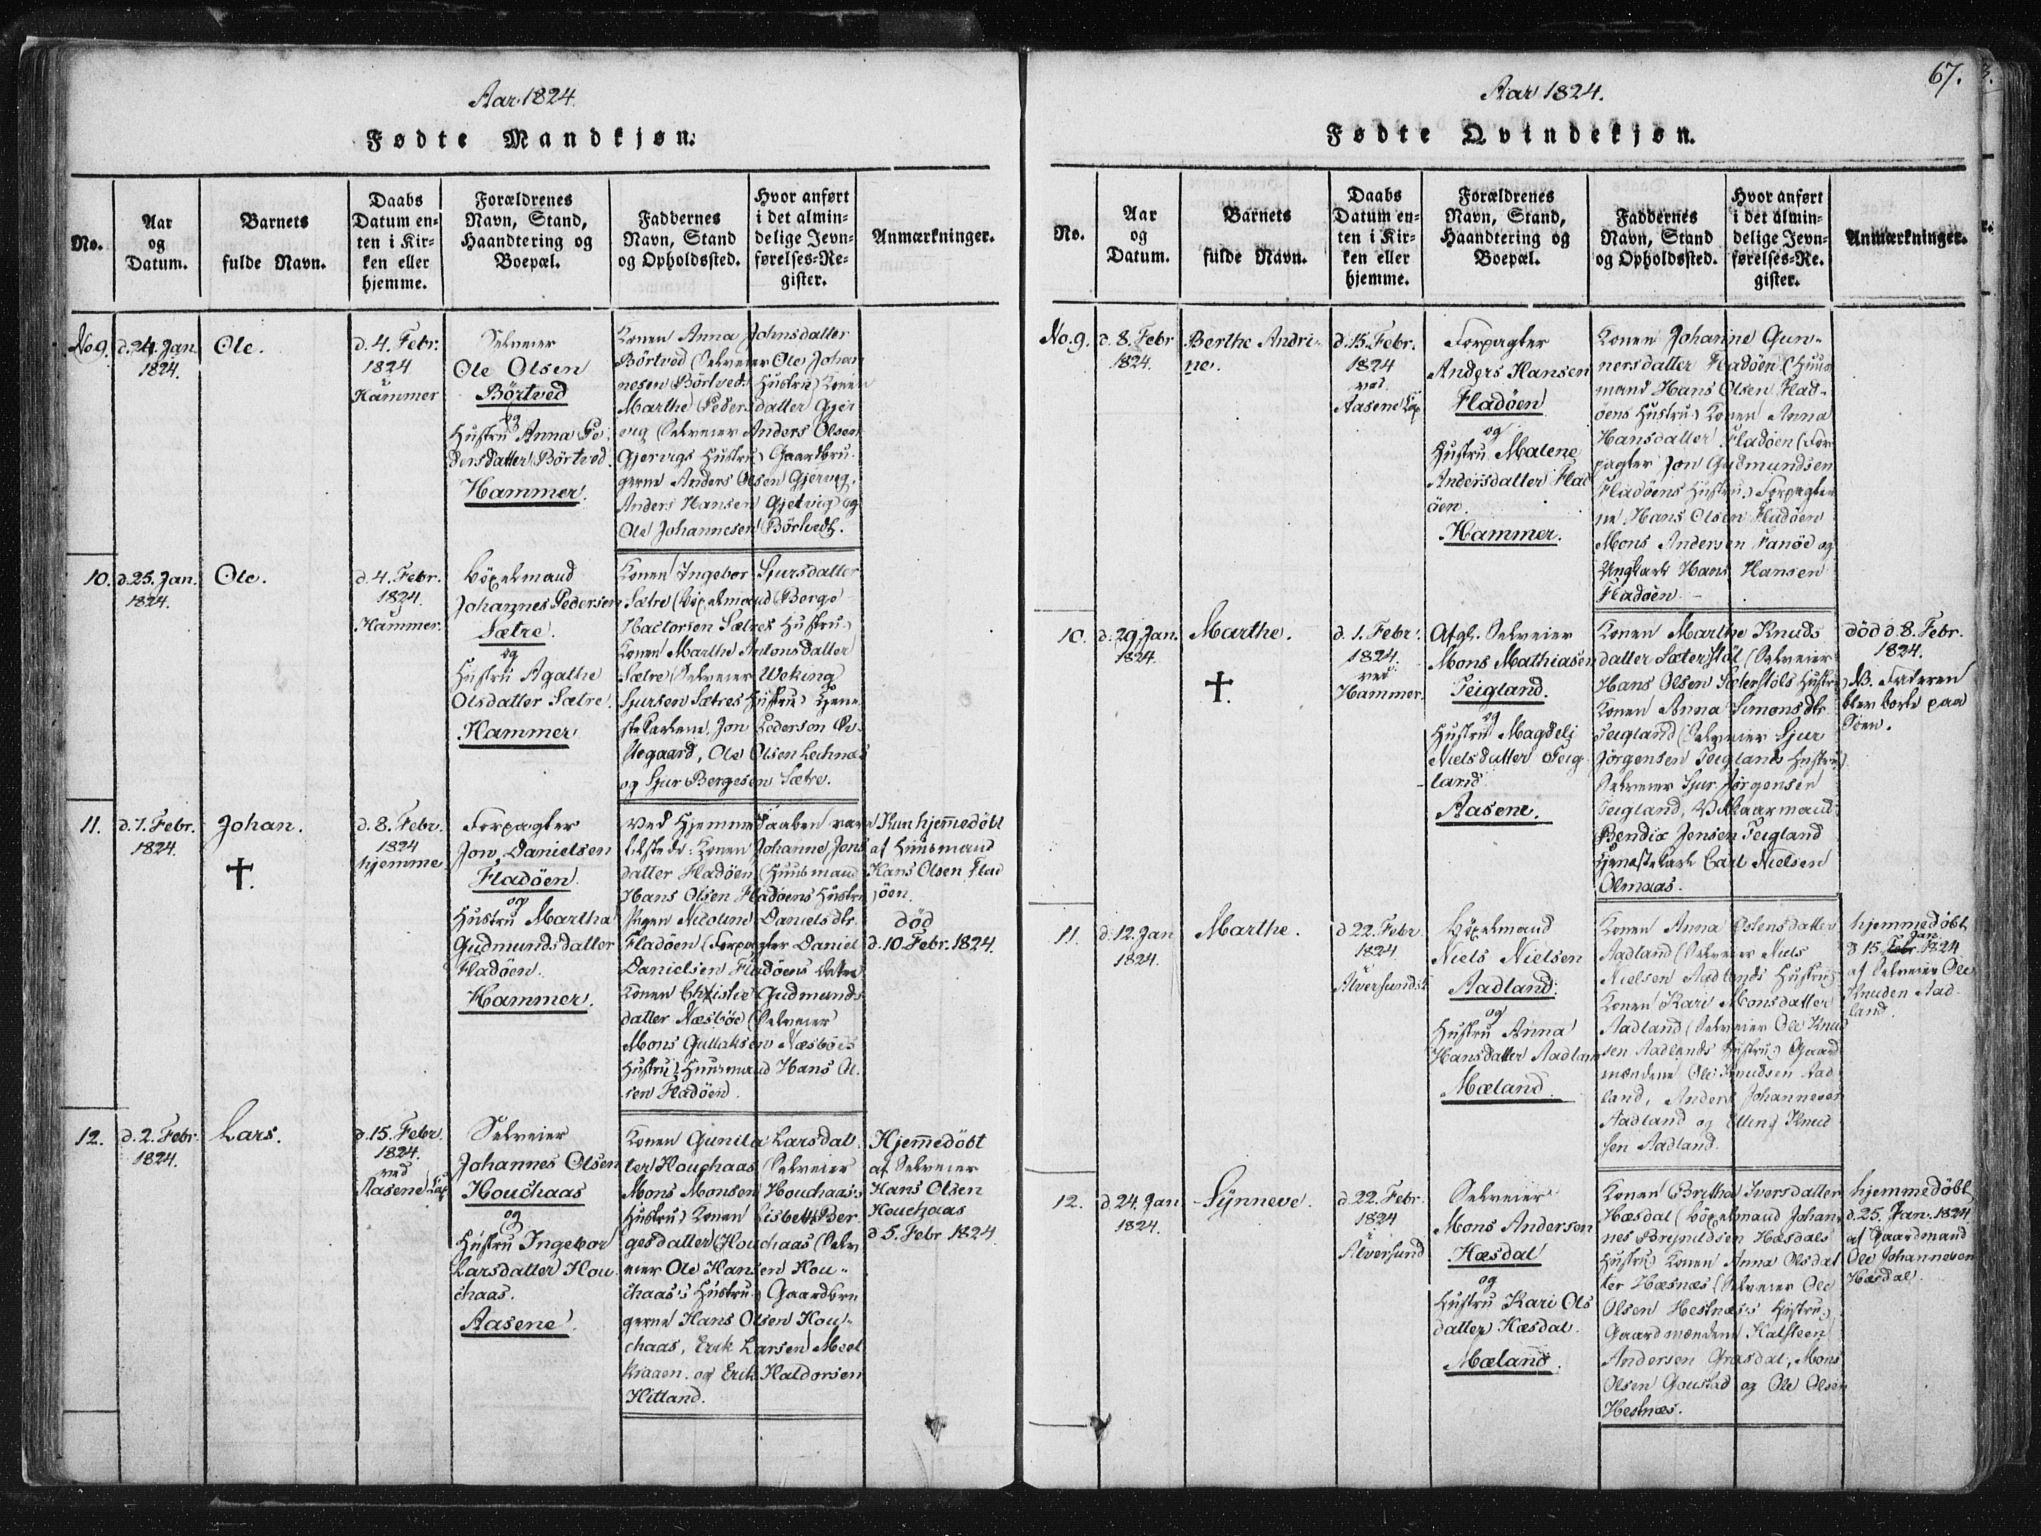 Aar 1824.
Fødte Mandkjøn.
No.
Aar
og
Datum.
Barnets
fulde Navn.
Daabs
Datum en-
ten i Kir-
ken eller
hjemme.
Forældrenes
Navn, Stand,
Haandtering og
Boepæl.
Faddernes
Navn, Stand
og Opholdssted.
Hvor anført
i det almin-
delige Jevn-
førelses-Re-
gister.
Anmærkninger.
No 9.
d. 24. Jan.
1824.
Ole.
d. 4. Febr.
1824
i
Hammer
Selveier
Ole Olsen
Børtved
og
Hustru Anna Pe-
dersdatter Børtved.
Hammer.
Konen Anna Johnsdatter
Børtved (Selveier Ole Johan
nesen Børtveds Hustru) Konen
Marthe Pedersdatter Gjer
vig (Selveier Anders Olsen
Gjervigs Hustru) Gaardbru-
gerne Anders Olsen Gjervig,
Anders Hansen Gjervig og
Ole Johannesen Børtvedt.
10.
d. 25. Jan.
1824.
Ole.
d. 4. Febr.
1824.
i
Hammer.
Bøxelmand
Johannes Pedersen
Sætre.
og
Hustru Agathe
Olsdatter Sætre.
Hammer
Konen Ingebor Sjursdatter
Sætre (Bøxelmand Berge
Hactorsen Sætres Hustru)
Konen Marthe Antonsdatter
Sætre (Selveier Weking
Sjursen Sætres Hustru) Tjene
stekarlene, Jon Pedersen
Ole Olsen
og Sjur Bergesen Sætre.
11.
d. 7. Febr.
1824.
Johan.
†.
d. 8. Febr.
1824
hjemme
Forpagter
Jon Danielsen
Fladøen.
og
Hustru Martha
Gudmundsdatter
Fladøen.
Hammer.
Ved Hjemme Daaben vare
tilstede: Konen Johanne Jons
datter Fladøen (Huusmand
Hans Olsen Fladøens Hustru
Pigen Nicoline Daniels dtr.
Fladøen (Forpagter Daniel
Danielsen Fladøens Datter
Konen Christie Gudmunds
datter Næsbøe (Selveier
Mons Gullaksen Næsbøes
Hustru) Huusmand Hans Ol-
sen Fladøen.
Kun hjemedøbt
af Huusmand
Hans Olsen Flad
øen.
død
d. 10. Febr. 1824.
12.
d. 2. Febr.
1824.
Lars.
d. 15. Febr.
1824.
ved
Aasene Cap
Selveier
Johannes Olsen
Houchaas
og
Hustru Ingebor
Larsdatter Hou
chaas.
Aasene.
Konen Gunilda Larsdat
ter Houchaas (Selveier
Mons Monsen Houchaas's
Hustru) Konen Lisbeth Ber
gesdatter Houchaas (Selv
eier Ole Hansen Hou-
chaas's Hustru) Gaardbru
gerne Hans Olsen Hou-
chaas, Erik Larsen Meel
kraaen, og Erik Haldorsen
Hitland.
Hjemedøbt
af Selveier
Hans Olsen
Houchaas
d 5. Febr 1824.
67.
Aar 1824.
Fødte Qvindekjøn.
No.
Aar
og
Datum.
Barnets
fulde Navn.
Daabs
Datum en-
ten i Kir-
ken eller
hjemme.
Forældrenes
Navn, Stand,
Haandtering og
Boepæl.
Faddernes
Navn, Stand
og Opholdssted.
Hvor anført
i det almin-
delige Jevn-
førelses-Re-
gister.
Anmærkninger.
No. 9.
d. 8. Febr
1824.
Berthe Andri-
ne.
d. 15. Febr.
1824
ved
Aasene Cap
Forpagter
Anders Hansen
Fladøen
og
Hustru Malene
Andersdatter Flad
øen.
Hammer.
Konen Johanne Gun-
nersdatter Fladøen (Huus
mand Hans Olsen Flad-
øens Hustru) Konen Anna
Hansdatter Fladøen (For
pagter Jon Gudmundsen
Fladøens Hustru) Forpagter
ne Hans Olsen Fladøen
Mons Andersen Fanøe og
Ungkarl Hans Hansen
Fladøen.
10.
d. 29. Jan.
1824.
Marthe.
†.
d. 1. Febr.
1824.
ved
Hammer.
Afgl. Selveier
Mons Mathiasen
Teigland.
og
Hustru Magdeli
Nielsdatter Teig
land.
Aasene.
Konen Marthe Knuds
datter Sæterstøl (Selveier
Hans Olsen Sæterstøls Hustru)
Konen Anna Simonsdtr.
Teigland (Selveier Sjur
Jørgensen Teiglands Hustru)
Selveier Sjur Jørgensen
Teigland,
Bendix Jensen Teigland
Tjenestekarl Carl Nielsen
Olmaas.
død d. 8. Febr.
1824.
NB. Faderen
blev borte paa
Søen.
11.
d. 12. Jan
1824.
Marthe.
d 22. Febr
1824
i
Alversund.
Bøxelmand
Niels Nielsen
Aadland.
og
Hustru Anna
Hansdatter Aadland
Mæland.
Konen Anna Østensdatter
Aadland (Selveier Niels
Nielsen Aadlands Hustru)
Konen Kari Monsdatter
Aadland (Selveier Ole Knud
sen Aadlands Hustru) Gaard
mændene Ole Knudsen Aad
land, Anders Johannesen
Aadland og Elling Knud
sen Aadland.
hjemmedøbt
d 15. Jan. 1824
af Selveier Ole
Knudsen Aad
land.
12.
d. 24. Jan
1824.
Synneve.
d. 22. Febr
1824
i
Alversund
Selveier
Mons Andersen
Hæsdal
og
Hustru Kari Ols
datter Hæsdal.
Mæland.
Konen Britha Iversdatter
Hæsdal (Bøxelmand Johan
nes Brynildsen Hæsdals
Hustru) Konen Anna Olsdat
ter Hæsnæs (Selveier Ole
Olsen Hestnæs's Hustru)
Gaardmændene Halsteen
Andersen Grasdal, Mons
Olsen Goustad og Ole Olsen
Hestnæs.
hjemmedøbt
d. 25. Jan. 1824
af Gaardmand
Ole Johannesen
Hæsdal.